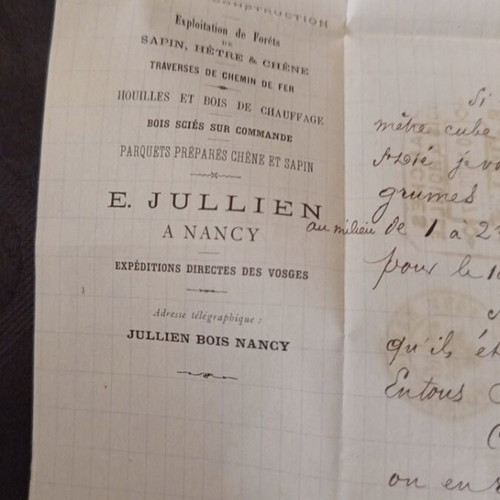 CONSTRUCTION
Exploitation de Forêts
DE
SAPIN, HÊTRE & CHÊNE
TRAVERSES DE CHEMIN DE FER
HOUILLES ET BOIS DE CHAUFFAGE
BOIS SCIÉS SUR COMMANDE
PARQUETS PRÉPARÉS CHÊNE ET SAPIN
E. JULLIEN
A NANCY
EXPÉDITIONS DIRECTES DES VOSGES
Adresse télégraphique :
JULLIEN BOIS NANCY
Si
mètre cube
grumes
au milieu de 1 a 2
pour le
qu'il
Entous
on en